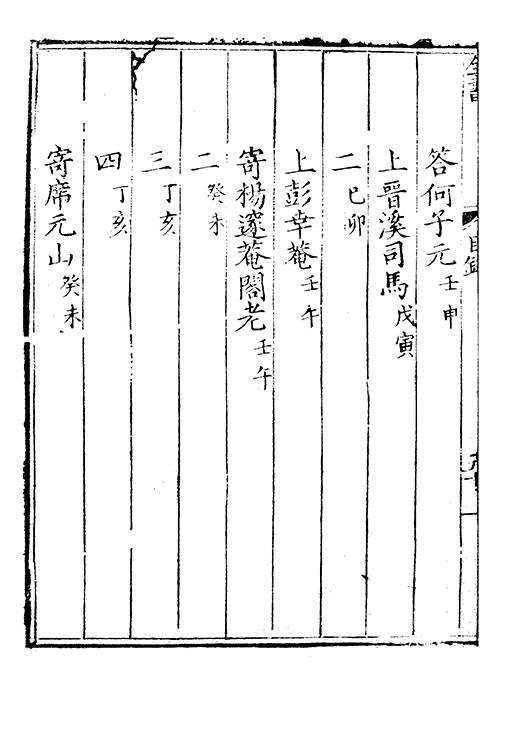 答何子元壬申
上晉溪司馬戊寅
二己卯
上彭幸菴壬午
寄楊邃菴閣老壬午
二癸未
三丁亥
四丁亥
寄席元山癸未
全書
目錄